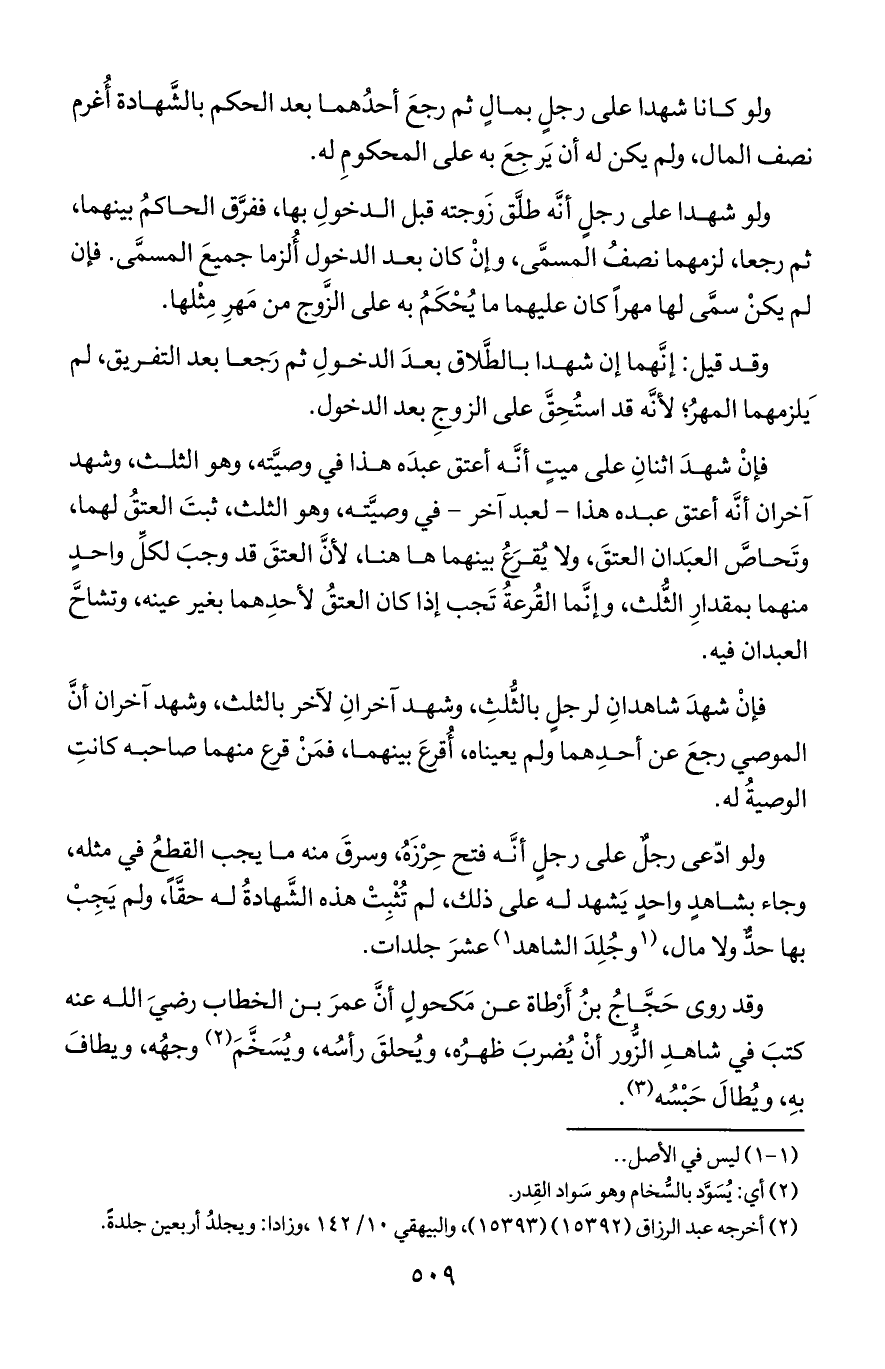 ولو كانا شهدا على رجلٍ بمالٍ ثم رجعَ أحدُهما بعد الحكم بالشَّهادة أُغرم
نصف المال، ولم يكن له أن يَرجِعَ به على المحكومِ له.
ولو شهدا على رجلٍ أنَّه طلَّق زَوجته قبل الدخولِ بها، ففرَّق الحاكمُ بينهما،
ثم رجعا، لزمهما نصفُ المسمَّى، وإنْ كان بعد الدخول أُلزما جميعَ المسمَّى. فإن
لم يكنْ سمَّى لها مهراً كان عليهما ما يُحْكَمُ به على الزَّوج من مَهرِ مِثْلها.
وقد قيل: إنَّهما إن شهدا بالطَّلاق بعدَ الدخولِ ثم رَجعا بعد التفريق، لم
يَلزمهما المهرُ؛ لأنَّه قد استُحِقَّ على الزوجِ بعد الدخول.
فإنْ شهدَ اثنانِ على ميتٍ أنَّه أعتق عبدَه هذا في وصيَّته، وهو الثلث، وشهد
آخران أنَّه أعتق عبده هذا - لعبد آخر - في وصيَّته، وهو الثلث، ثبتَ العتقُ لهما،
وتَحاصَّ العبَدان العتقَ، ولا يُقرَعُ بينهما ها هنا، لأنَّ العتقَ قد وجبَ لكلِّ واحدٍ
منهما بمقدارِ الثُّلث، وإنَّما القُرعةُ تَجب إذا كان العتقُ لأحدِهما بغير عينه، وتشاحَّ
العبدان فيه.
فإنْ شهدَ شاهدانِ لرجلٍ بالثُّلثِ، وشهد آخرانِ لآخر بالثلث، وشهد آخران أنَّ
الموصي رجعَ عن أحدِهما ولم يعيناه، أُقرعَ بينهما، فمَنْ قرع منهما صاحبه كانتِ
الوصيةُ له.
ولو ادّعى رجلٌ على رجلٍ أنَّه فتح حِرْزَهُ، وسرقَ منه ما يجب القطعُ في مثله،
وجاء بشاهدٍ واحدٍ يَشهد له على ذلك، لم تُثْبِتْ هذه الشَّهادةُ له حقَّاً، ولم يَجِبْ
بها حدٌّ ولا مال، (١وجُلِدَ الشاهد١) عشرَ جلدات.
وقد روى حَجَّاجُ بنُ أَرْطاة عن مَكحولٍ أنَّ عمرَ بن الخطاب رضيَ الله عنه
كتبَ في شاهدِ الزُّور أنْ يُضربَ ظهرُه، ويُحلقَ رأسُه، ويُسَخَّمَ(٢) وجهُه، ويطافَ
بهِ، ويُطالَ حَبْسُه(٣).
(١-١) ليس في الأصل..
(٢) أي: يُسَوَّد بالسُّخام وهو سَواد القِدر.
(٢) أخرجه عبد الرزاق (١٥٣٩٢) (١٥٣٩٣)، والبيهقي ١٠/ ١٤٢ ،وزادا: ويجلدُ أربعين جلدةً.
٥٠٩